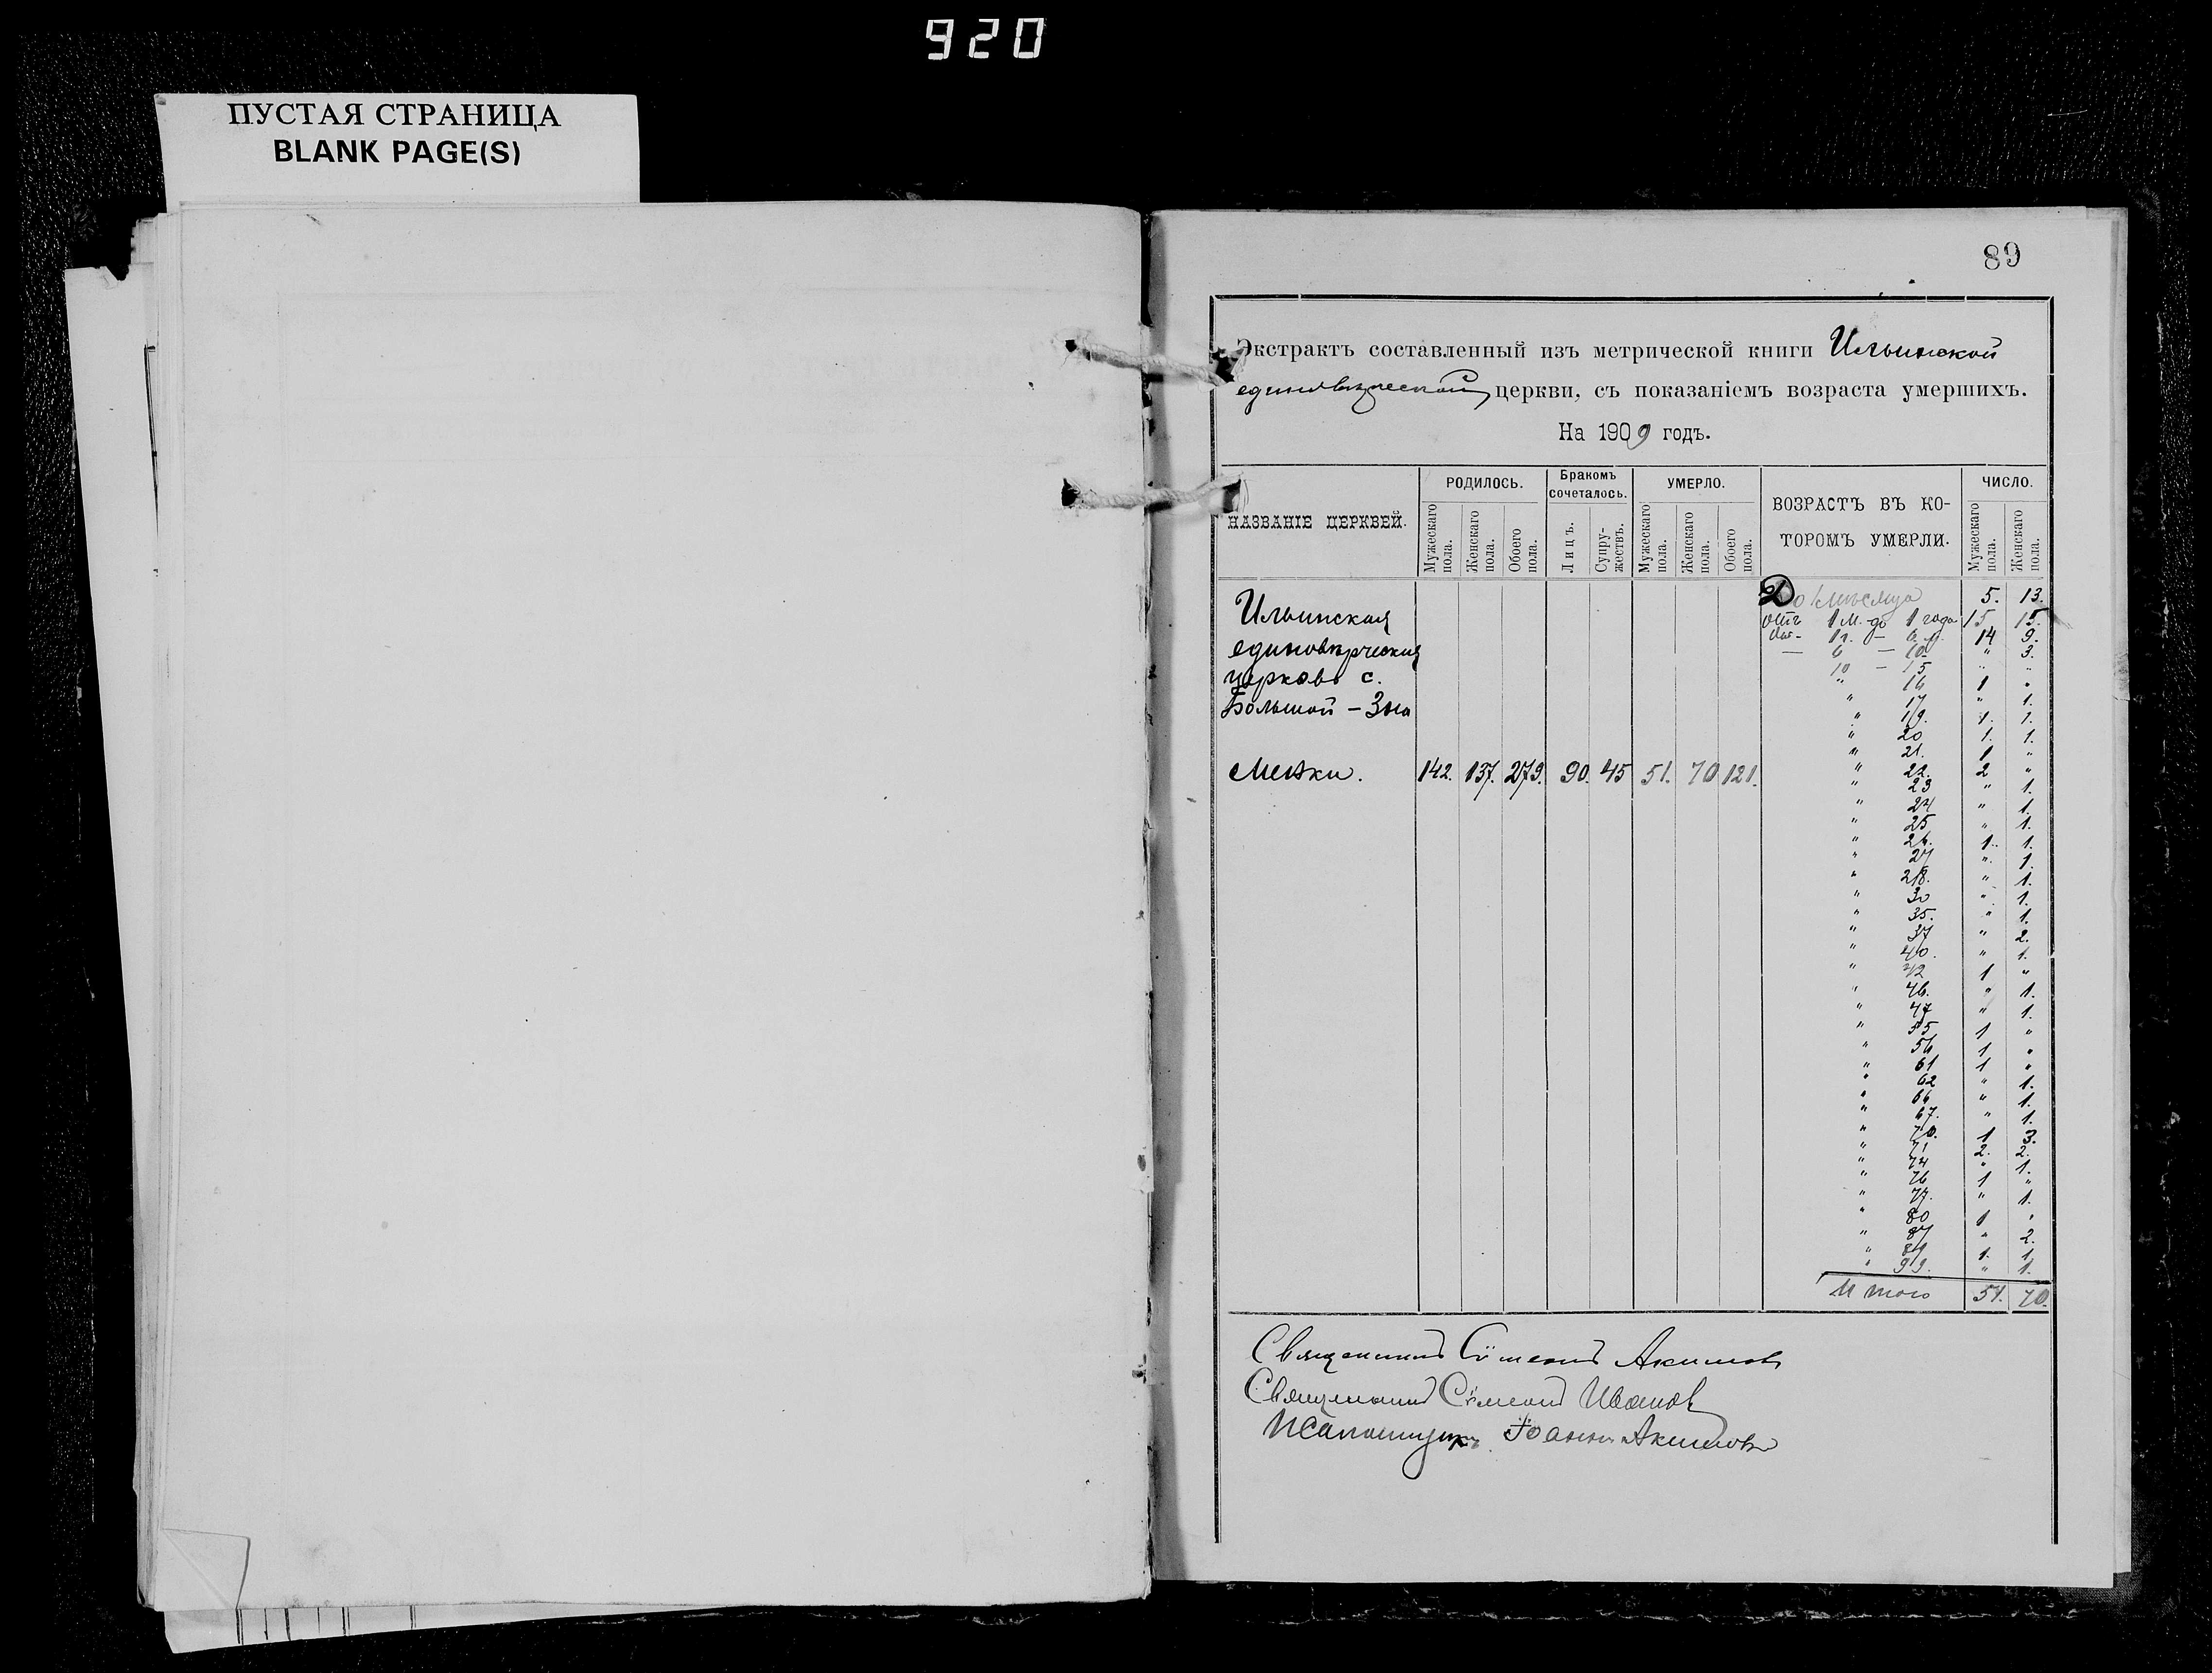 920
ПУСТАЯ СТРАНИЦА
BLANK PAGE(S)
89
Экстрактъ составленный изъ метрической книги Ильинской
единовѣрческой церкви, съ показаніемъ возраста умершихъ.
На 1909 годъ.
НАЗВАНІЕ ЦЕРКВЕЙ. РОДИЛОСЬ. Бракомъ сочеталось. УМЕРЛО. ВОЗРАСТЪ ВЪ КО-ТОРОМЪ УМЕРЛИ. ЧИСЛО.
Мужескаго пола. Женскаго пола. Обоего пола. Лицъ. Супружествъ. Мужескаго пола. Женскаго пола. Обоего пола. Мужескаго пола. Женскаго пола.
Ильинская
единовѣрческая
церковь с.
Большой - Зна
менки. 142. 137. 279. 90. 45 51. 70 121.
До 1 мѣсяца 5. 13.
отъ 1 м. до 1 года 15 15.
1 г. — 6 14 9.
— 6 — 10 " 3.
10 — 15 " "
" 16 1 "
" 17 " 1.
" 19. 1. 1.
" 20 1. 1.
" 21. 1 "
" 22. 2 "
" 23 " 1.
" 24 " 1.
" 25 " 1.
" 26. 1. 1.
" 27 " 1.
" 28. " 1.
" 30 " 1.
" 35. " 1.
" 37 " 2.
" 40. " 1.
" 42 1 "
" 46. " 1.
" 47 " 1.
" 55 1 "
" 56 1 "
" 61 1 "
" 62 " 1.
" 66 " 1.
" 67. " 1.
" 70. 1 3.
" 71 2. 2.
" 74 " 1.
" 76 1 "
" 77. " 1.
" 80 1 "
" 87 " 2.
" 89 1. 1.
" 99. " 1.
Итого 51. 70.
Священникъ Сѵмеонъ Акимовъ
Священникъ Сѵмеонъ Ивановъ
Псаломщикъ Іоаннъ Акимовъ